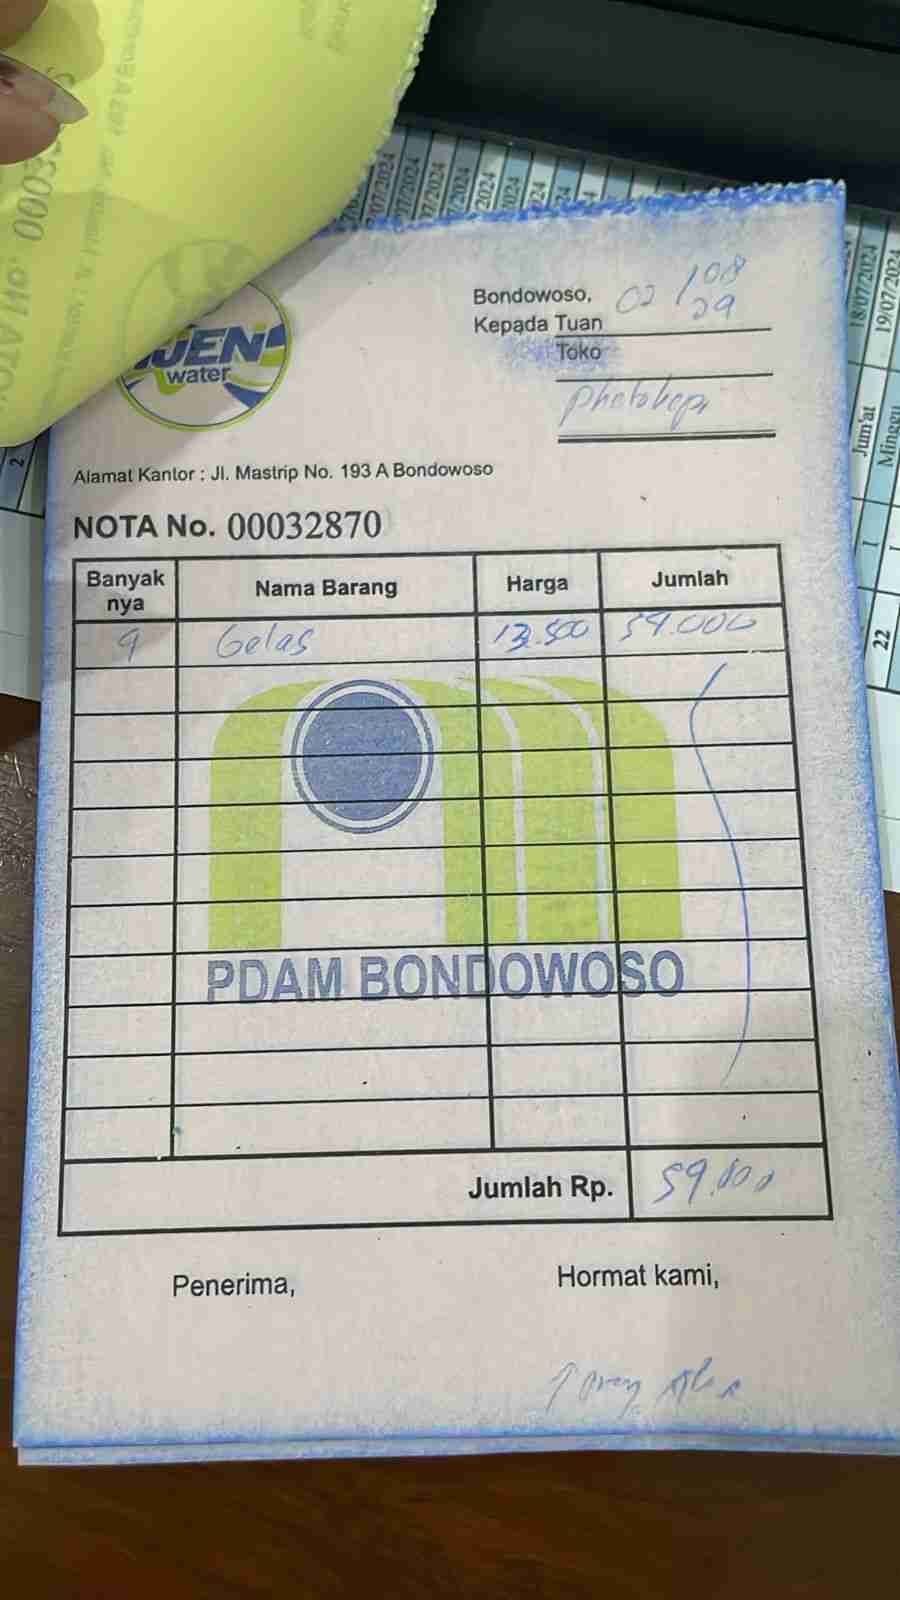 IJEN
water
Bondowoso, 02/08
29
Kepada Tuan
Toko
photokopi
Alamat Kantor : Jl. Mastrip No. 193 A Bondowoso
NOTA No. 00032870
Banyak nya Nama Barang Harga Jumlah
4 Gelas 13.500 54.000
PDAM BONDOWOSO
Jumlah Rp. 54.000
Penerima, Hormat kami,
18/07/2024
19/07/2024
Jum'at
Minggu
1
1
22
2